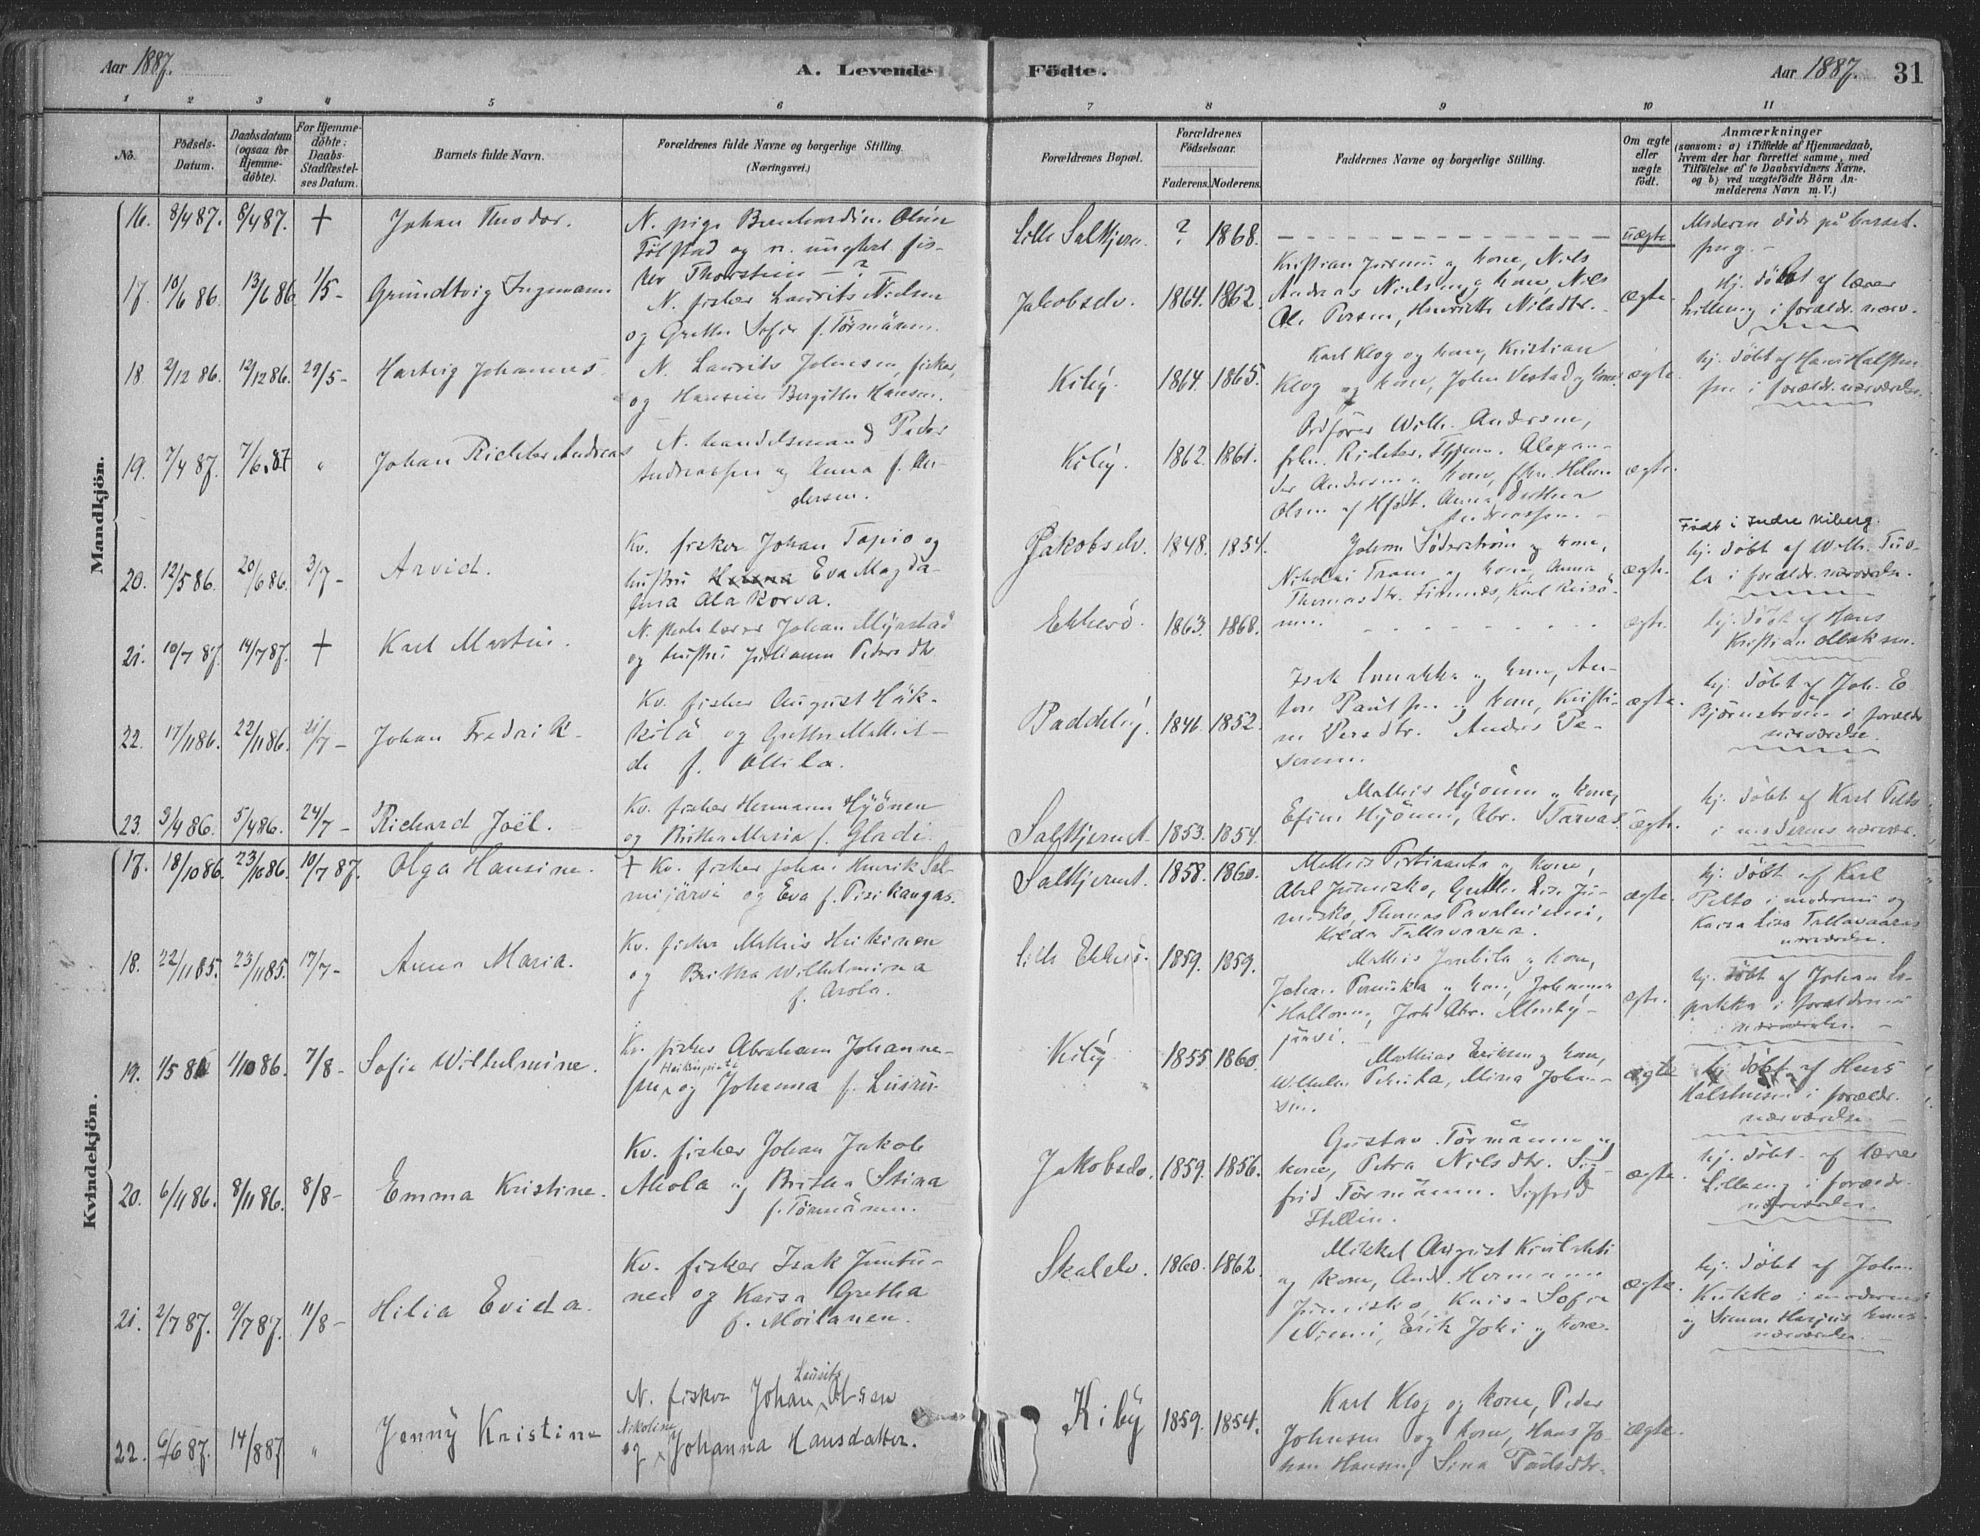 Aar 1887.
A. Levende Födte.
Aar 1887. 31
1 2 3 4 5 6 7 8 9 10 11
No.
Födsels-Datum.
Daabsdatum (ogsaa for Hjemme-döbte).
For Hjemme-döbte: Daabs-Stadfæstel-ses Datum.
Barnets fulde Navn.
Forældrenes fulde Navne og borgerlige Stilling.
(Næringsvei.)
Forældrenes Bopæl.
Forældrenes Födselsaar.
Faderens. Moderens.
Faddernes Navne og borgerlige Stilling.
Om ægte eller uægte födt.
Anmærkninger
(saasom: a) i Tilfælde af Hjemmedaab,
hvem der har forrettet samme, med
Tilföielse af to Daabsvidners Navne,
og b) ved uægtefödte Börn An-
melderens Navn m. V.)
Mandkjön.
16. 8/4 87. 8/4 87. + Johan Theodor.
N. pige Bernhardine Olsen
Tölstad og n. ungkarl fis-
ker Thorstein – ?
Lille Saltkjern. ? 1868. uægte
Moderen döde på barsel-
seng. –
17. 10/6 86. 13/6 86 1/5 – Grundtvig Ingemann
N. fisker Laurits Nielsen
og Grethe Sofie f. Törmänen.
Jakobselv. 1864. 1862.
Kristian og kone, Nils
Andreas Nielsen og kone, Nils
Ole Persen, Henriette Nilsdtr. –
ægte.
Hj. döbt af lærer
Lilleeng i forældr. nærv.
18. 2/12 86. 12/12 86. 29/5 – Hartvig Johannes.
N. Laurits Johnsen, fisker,
og Hansine Bergitte Hansen.
Kiby. 1864. 1865.
Karl Klog og kone, Kristian
Klog og kone, John Vestad og kone
ægte.
hj. döbt af Hans Halsten-
sen i forældr. nærværelse.
19. 7/4 87. 7/6 87 " Johan Richter Andreas
N. handelsmand Peder
Andreassen og Anna f. An-
dersen.
Kiby. 1862. 1861.
Ordförer Wilh. Andersen,
frkn. Richter. Alexan-
der Andersen kone, frkn. Helene
Olsen af Hfst. Anna Dorthea
Andreassen. –
ægte.
20. 12/5 86. 20/6 86. 3/7 – Arvid.
Kv. fisker Johan Tapio og
hustru Eva Magda-
lena Alakorva.
Jakobselv. 1848. 1854.
Johan Söderström og kone,
Nikolai Tram og kone, Anna
Thomasdtr. Karl Reisö-
nen.
ægte.
Född i Indre Kiberg.
hj. döbt af Wilh. Tuo-
la i forældr. nærværelse.
21. 10/7 87. 14/7 87. + Karl Martin.
N. lærer Johan Myrstad
og hustru Julianna Pedersdtr.
Ekkerö. 1863. 1868. ægte.
hj. döbt af Hans
Kristian Olsok sen.
22. 17/11 86. 22/11 86. 21/7 – Johan Fredrik
Kv. fisker August Häk-
kilä og Grethe Mathil-
de f. Ollila.
Paddeby. 1846. 1852.
Isak og kone, An-
ton Paulsen og kone, Kristi-
ne Persdtr. Anders Pe-
dersen.
ægte.
hj. döbt af Joh. E
Björnström i forældr
nærværelse.
23. 3/4 86. 5/4 86. 24/7 – Richard Joël.
Kv. fisker Hermann Hyönen
og Britha Maria f. Gladi.
Saltkjernet. 1853. 1854.
Mathis Hyönen og kone,
Efim Hyönen, Abr. Tarvas.
ægte.
hj. döbt af Karl Pelto
i moderens nærvær.
Kvindekjön.
17. 18/10 86. 23/10 86. 10/7 87. Olga Hansine.
+ Kv. fisker Johan Henrik Sal-
mijärvi og Eva f. Pisikangas.
Saltkjernet. 1858. 1860.
Mathis og kone,
Abel Junisko, Grethe Lisa Ju-
nisko, Thomas Pavalniemi,
Hilda Tallavaara.
ægte.
hj. döbt af Karl
Pelto i moderens og
Kaisa Lisa Tallavaaras
nærværelse.
18. 22/11 85. 23/11 85. 17/7 – Anna Maria.
Kv. fisker Mathis Heikinen
og Britha Wilhelmina
f. Arola.
Lille Ekkerö. 1859. 1859.
Mathis og kone,
Johan og kone, Johanna
Joh. Abr.
järvi. –
ægte.
hj. döbt af Johan
i forældrenes
nærværelse. –
19. 1/5 86 1/10 86. 7/8 – Sofie Wilhelmine.
Kv. fisker Abraham Johanne-
sen og Johanna f. Lusru-
Kiby 1855. 1860.
Mathias Eriksen og kone,
Wilhelm Mina Johan-
sen.
ægte
hj. döbt af Hans
Halstensen i forældr.
nærværelse –
20. 6/11 86. 8/11 86. 8/8 – Emma Kristine.
Kv. fisker Johan Jakob
Akola og Britha Stina
f. Törmänen.
Jakobselv. 1859. 1856.
Gustav Törmänen og
kone, Petra Nilsdtr. Sig-
frid Törmänen. Sigfrid
ægte.
hj. döbt af lærer
Lilleeng i forældr.
nærværelse.
21. 2/7 87. 9/7 87. 11/8 – Hilia Evida.
Kv. fisker Isak Juntu-
nen og Kaisa Gretha
f. Moilanen.
Skalelv. 1860. 1862.
Mikkel August
og kone, And. Hermann
Junisko, Kaisa Sofie
Niemi, Erik Joki og kone.
ægte.
hj. döbt af Johan
Kukko i moderens
og Simon Harjus kones
nærværelse. –
22. 6/6 87. 14/8 87 " Jenny Kristine
N. fisker Johan Laurits Olsen
og Nikoline Johanna Hansdatter.
Kiby 1859. 1854.
Karl Klog og kone, Peder
Johnsen og kone, Hans Jo-
han Hansen, Sina
ægte.